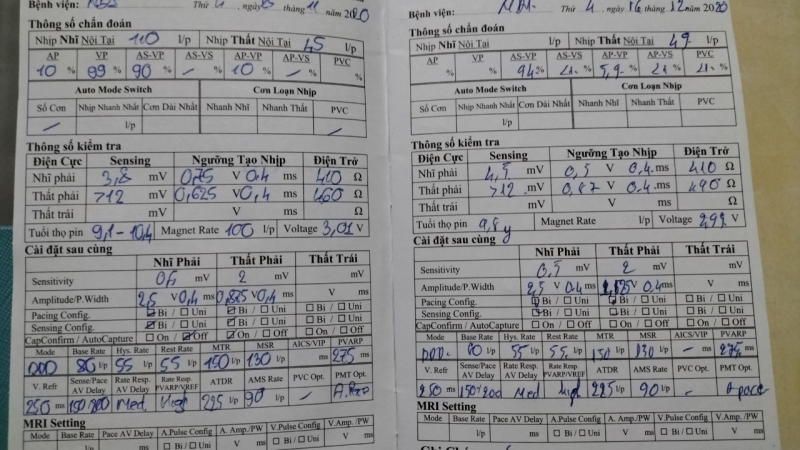 Bệnh viện: Thứ 4, ngày tháng 11 năm 2020
Thông số chẩn đoán
Nhịp Nhĩ Nội Tại 110 l/p Nhịp Thất Nội Tại 45 l/p
AP VP AS-VP AS-VS AP-VP AP-VS PVC
10 % 99 % 90 % - % 10 % - % %
Auto Mode Switch Cơn Loạn Nhịp
Số Cơn Nhịp Nhanh Nhất Cơn Dài Nhất Nhanh Nhĩ Nhanh Thất PVC
l/p
Thông số kiểm tra
Điện Cực Sensing Ngưỡng Tạo Nhịp Điện Trở
Nhĩ phải 3,8 mV 0,75 V 0,4 ms 410 Ω
Thất phải >12 mV 0,625 V 0,4 ms 460 Ω
Thất trái mV V ms Ω
Tuổi thọ pin 9,1-10,4 Magnet Rate 100 l/p Voltage 3,01 V
Cài đặt sau cùng
Nhĩ Phải Thất Phải Thất Trái
Sensitivity 0,5 mV 2 mV mV
Amplitude/P.Width 2,5 V 0,4 ms 0,4 ms V ms
Pacing Config. Bi / Uni Bi / Uni Bi / Uni
Sensing Config. Bi / Uni Bi / Uni Bi / Uni
CapConfirm / AutoCapture On / Off On / Off On / Off
Mode Base Rate Hys. Rate Rest Rate MTR MSR AICS/VIP PVARP
DDD 60 l/p 55 l/p 55 l/p 150 l/p 130 l/p 275 ms
V. Refr Sense/Pace AV Delay Rate Resp. AV Delay Rate Resp. PVARP/VREF ATDR AMS Rate PVC Opt. PMT Opt.
250 ms 150/200 Med. High 225 l/p 90 l/p - A.Pace
MRI Setting
Mode Base Rate Pace AV Delay A.Pulse Config A. Amp./PW V.Pulse Config V.Amp./PW
l/p ms Bi / Uni V ms Bi / Uni V ms
Bệnh viện: Thứ 4, ngày 16 tháng 12 năm 2020
Thông số chẩn đoán
Nhịp Nhĩ Nội Tại l/p Nhịp Thất Nội Tại 49 l/p
AP VP AS-VP AS-VS AP-VP AP-VS PVC
% % 94 % <1 % 5,9 % <1 % <1 %
Auto Mode Switch Cơn Loạn Nhịp
Số Cơn Nhịp Nhanh Nhất Cơn Dài Nhất Nhanh Nhĩ Nhanh Thất PVC
l/p
Thông số kiểm tra
Điện Cực Sensing Ngưỡng Tạo Nhịp Điện Trở
Nhĩ phải 4,5 mV 0,5 V 0,4 ms 410 Ω
Thất phải >12 mV 0,87 V 0,4 ms 490 Ω
Thất trái mV V ms Ω
Tuổi thọ pin 9,8y Magnet Rate l/p Voltage 2,99 V
Cài đặt sau cùng
Nhĩ Phải Thất Phải Thất Trái
Sensitivity 0,5 mV 2 mV mV
Amplitude/P.Width 2,5 V 0,4 ms V 0,4 ms V ms
Pacing Config. Bi / Uni Bi / Uni Bi / Uni
Sensing Config. Bi / Uni Bi / Uni Bi / Uni
CapConfirm / AutoCapture On / Off On / Off On / Off
Mode Base Rate Hys. Rate Rest Rate MTR MSR AICS/VIP PVARP
DDD. 60 l/p 55 l/p 55 l/p 150 l/p 130 l/p - 275 ms
V. Refr Sense/Pace AV Delay Rate Resp. AV Delay Rate Resp. PVARP/VREF ATDR AMS Rate PVC Opt. PMT Opt.
250 ms 150/200 Med High 225 l/p 90 l/p - A pace
MRI Setting
Mode Base Rate Pace AV Delay A.Pulse Config A. Amp./PW V.Pulse Config V.Amp./PW
l/p ms Bi / Uni V ms Bi / Uni V ms